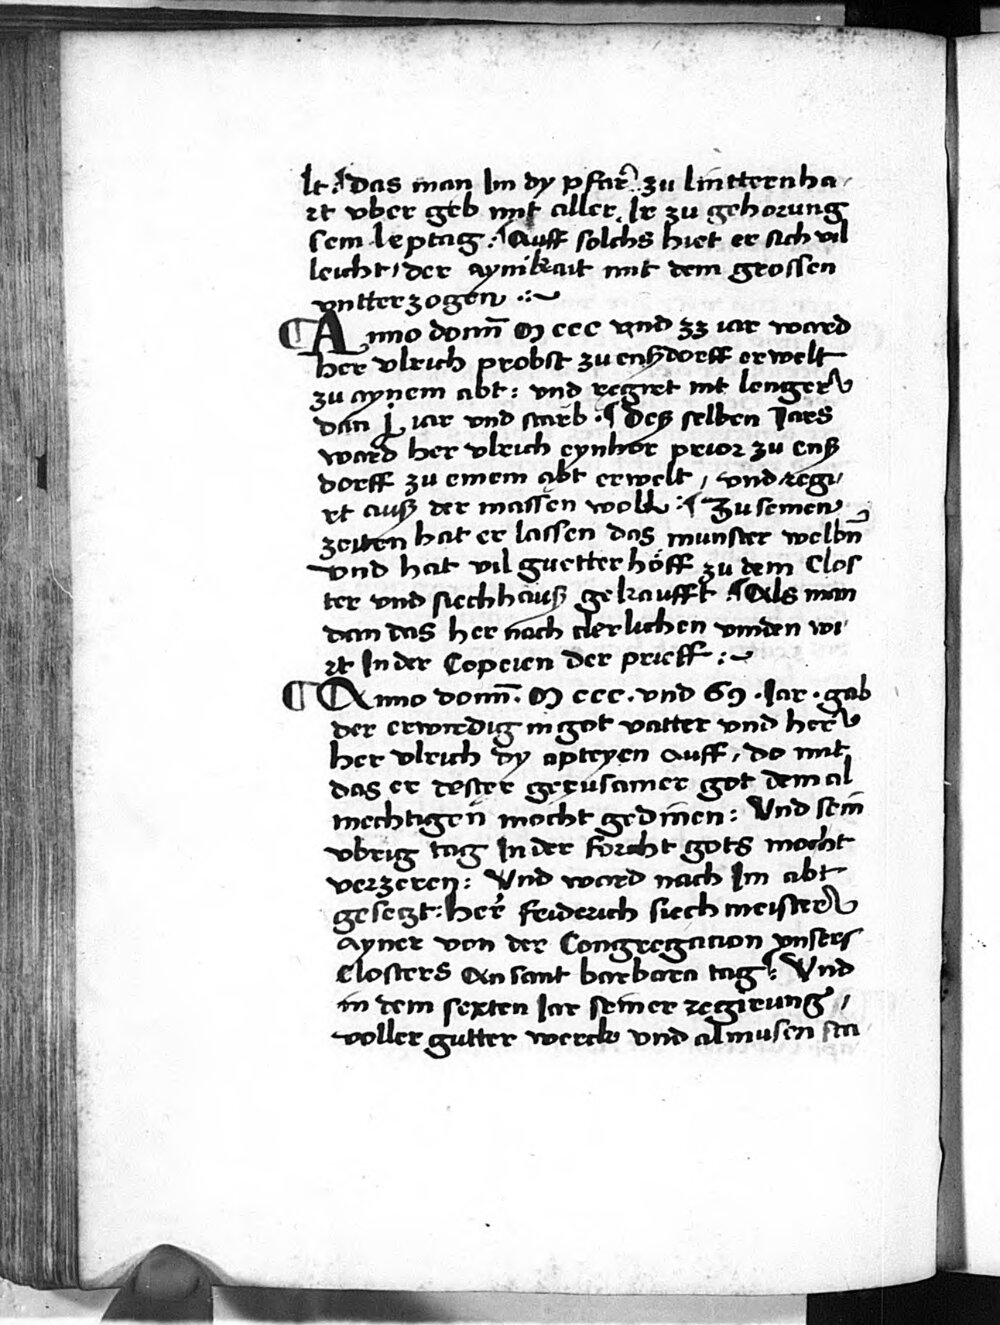 lt : das man Im dy pfarr zu lintternha
rt vber geb mit aller Ir zu gehorung
sein leptag : Auff solchs hiet er sich vil
leicht der aynikait mit dem grossen
vntterzogen :~
Anno domī M ccc vnd zz iar ward
her vlrich probst zu enßdorff erwelt
zu aynem abt : vnd regirt nit lenger
dan j iar vnd starb . Deß selben Jars
ward her vlrich eynhor prior zu enß
dorff zu einem abt erwelt / vnd regi
rt auß der massen woll : Zu seinen
zeitten hat er lassen das munster welbn̄
vnd hat vil guetter höff zu dem Clos
ter vnd siechhauß gekaufft . Als man
dan das her nach clerlichen vinden wi
rt In der Copeien der prieff :~
Anno domī . M ccc . vnd 69 . Iar . gab
der erwirdig in got vatter vnd herr
her vlrich dy apteyen auff / do mit
das er dester gerusamer got dem al
mechtigen mocht gedinen : Vnd sein
vbrig tag In der forcht gots mocht
verzeren : Vnd ward nach Im abt
gesetzt : her friderich siechmeister
ayner von der Congregacion vnsers
Closters An sant barbara tag : Vnd
in dem sexten Iar seiner regirung /
voller gutter werck vnd almusen sta